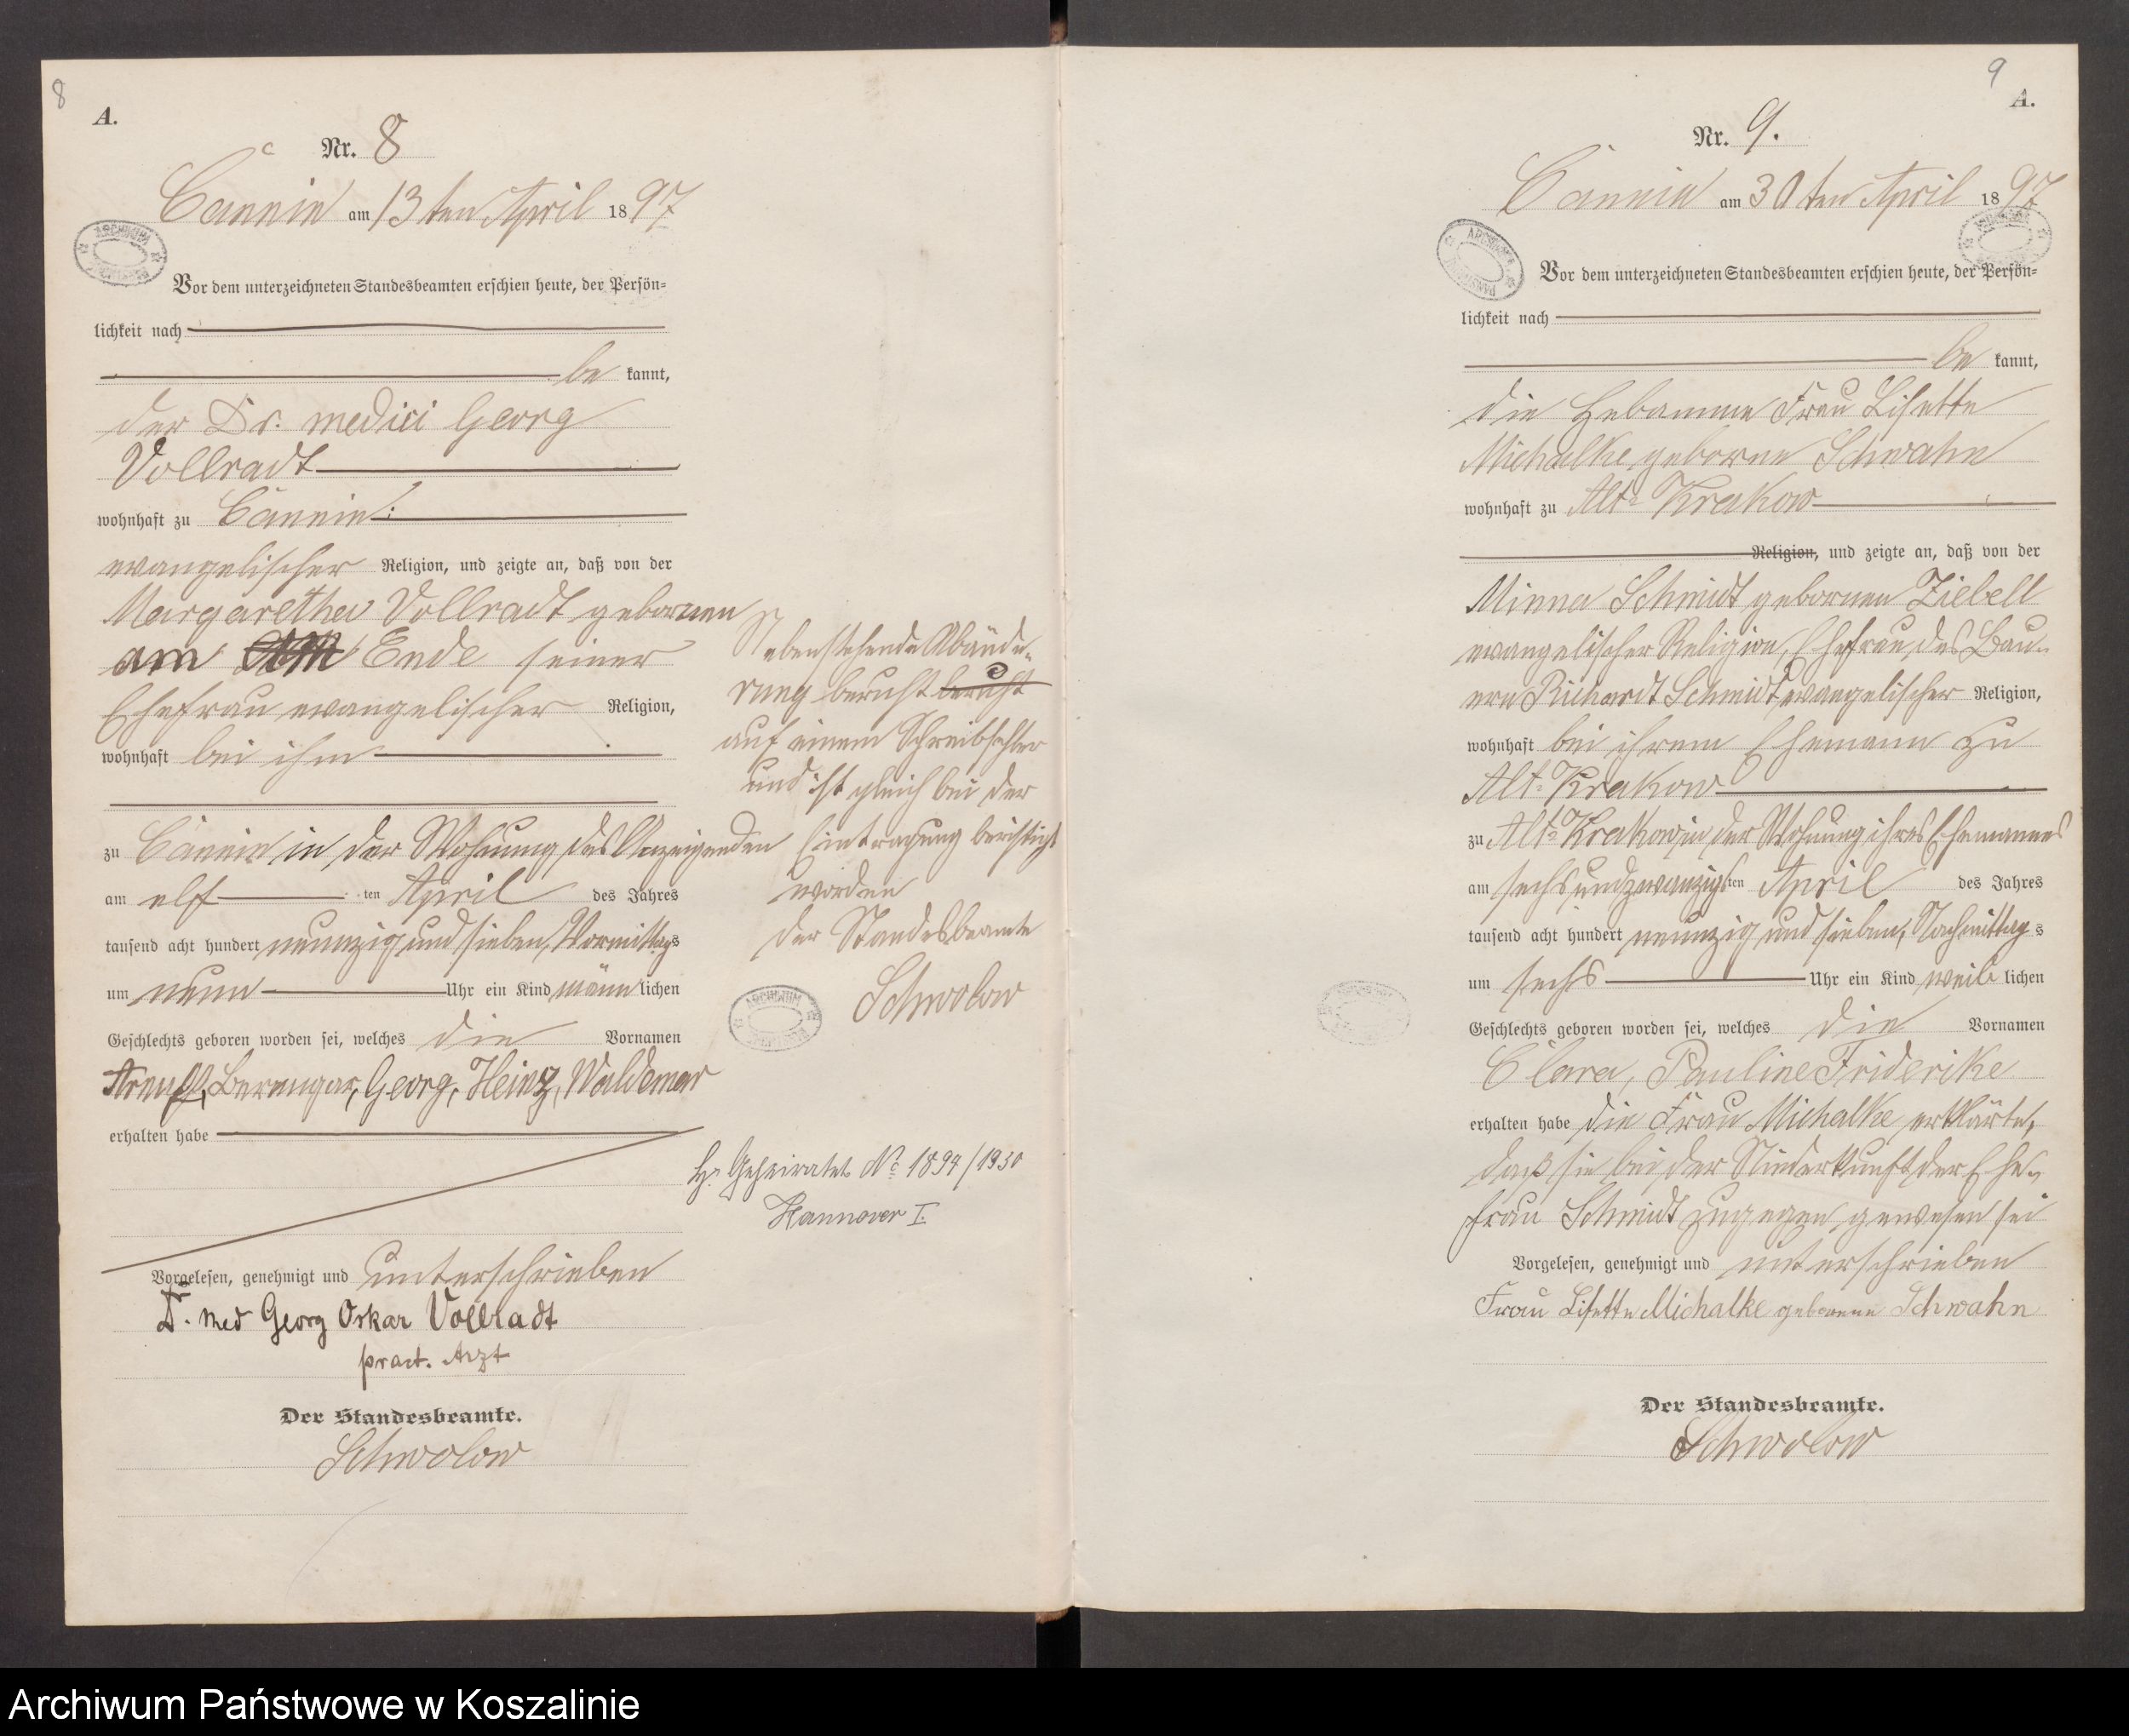 8
A.
Nr. 8
Cannin am 13ten April 1897
Vor dem unterzeichneten Standesbeamten erschien heute, der Persön-
lichkeit nach
be kannt,
der Dr. medici Georg
Vollradt
wohnhaft zu Cannin
evangelischer Religion, und zeigte an, daß von der
Margarethe Vollradt gebornen
am Ende seiner
Ehefrau evangelischer Religion,
wohnhaft bei ihm
zu Cannin in der Wohnung des Anzeigenden
am elf ten April des Jahres
tausend acht hundert neunzig und sieben, Vormittags
um neun Uhr ein Kind männ lichen
Geschlechts geboren worden sei, welches die Vornamen
Berengar, Georg, Heinz, Waldemar
erhalten habe
Vorgelesen, genehmigt und unterschrieben
Dr. med Georg Oskar Vollradt
pract. Arzt
Der Standesbeamte.
Schwolow
Nebenstehende Abände-
rung beruht beruht
auf einem Schreibfehler
und ist gleich bei der
Eintragung berichtigt
worden
Der Standesbeamte
Schwolow
Geheiratet No 1894/1930
Hannover I.
9
A.
Nr. 9.
Cannin am 30ten April 1897
Vor dem unterzeichneten Standesbeamten erschien heute, der Persön-
lichkeit nach
be kannt,
die Hebamme Frau Lisette
Michalke geborne Schwahn
wohnhaft zu Alt-Krakow
Religion, und zeigte an, daß von der
Minna Schmidt gebornen Ziebell
evangelischer Religion, Ehefrau des Bau-
ern Richardt Schmidt evangelischer Religion,
wohnhaft bei ihrem Ehemann zu
Alt-Krakow
zu Alt-Krakow in der Wohnung ihres Ehemannes
am sechsundzwanzigsten April des Jahres
tausend acht hundert neunzig und sieben, Nachmittags
um sechs Uhr ein Kind weib lichen
Geschlechts geboren worden sei, welches die Vornamen
Clara, Pauline Friderike
erhalten habe die Frau Michalke erklärte,
daß sie bei der Niederkunft der Ehe-
frau Schmidt zugegen gewesen sei
Vorgelesen, genehmigt und unterschrieben
Frau Lisette Michalke geborene Schwahn
Der Standesbeamte.
Schwolow
Archiwum Państwowe w Koszalinie